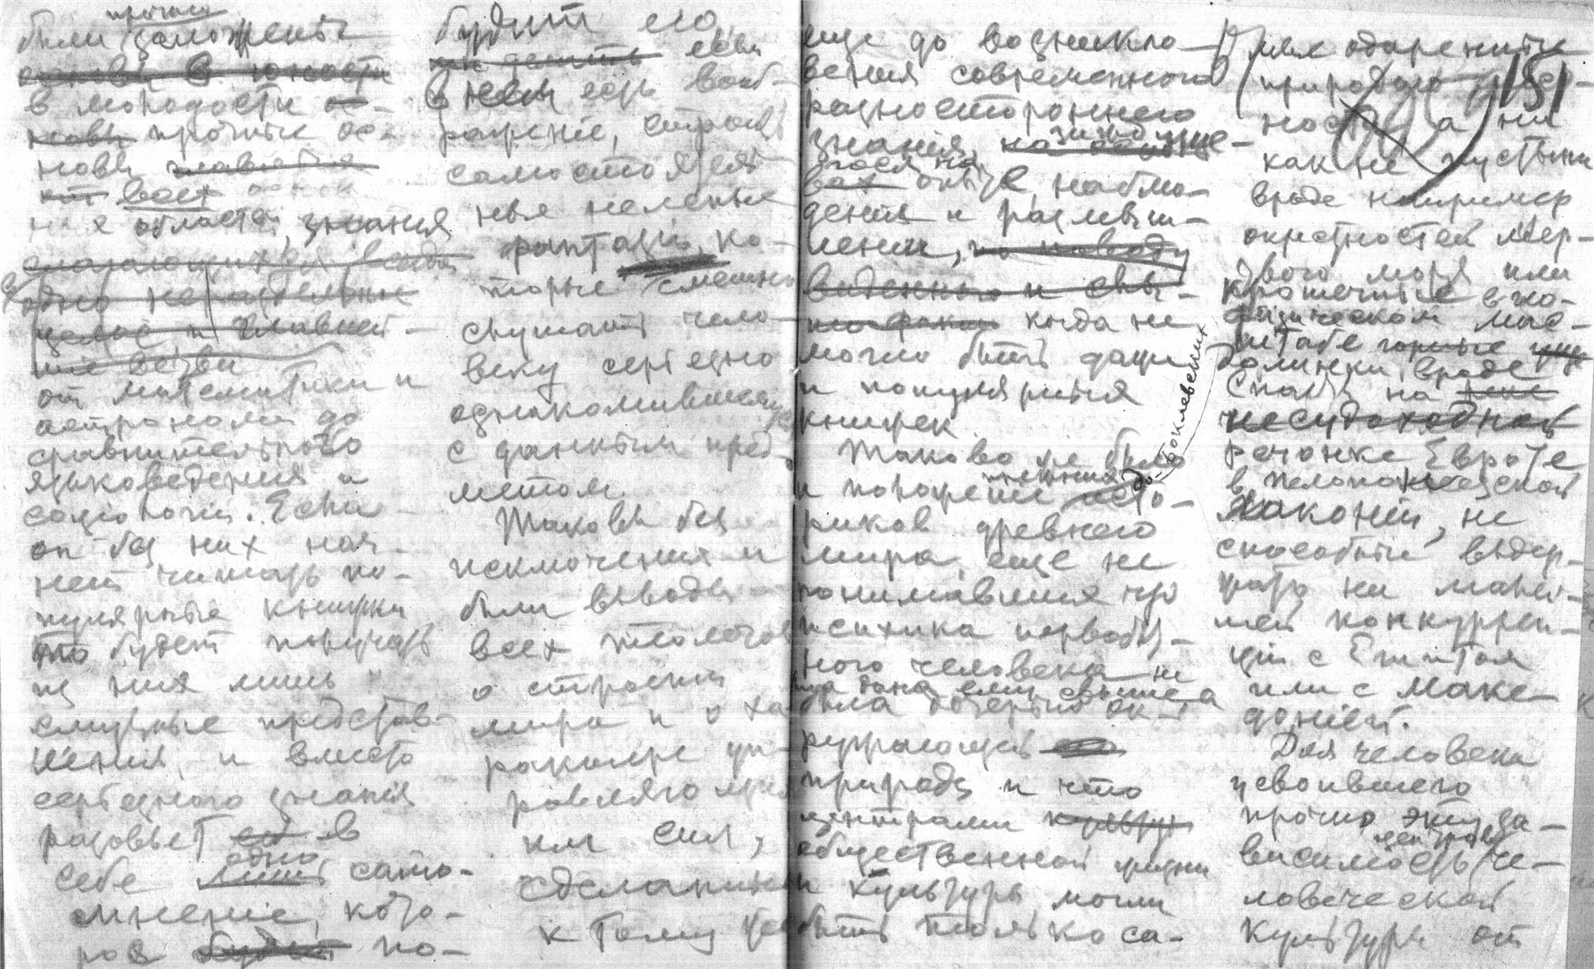 прочно
были заложены
основы в юности
в молодости ос-
новы прочные ос-
новы
всех
них областей знания
слагающихся в
одно нераздельное
целое и главней-
шие ветви
от математики и
астрономии до
сравнительного
языковедения и
социологии. Если
он без них нач-
нет читать по-
пулярные книжки
то будет получать
из них лишь
смутные представ-
ления, и вместо
серьезного знания
разовьет в
себе одно лишь само-
мнение, кото-
рая будет по-
будит его,
если
в нем есть вооб-
ражение, строить
самостоятель-
ные нелепые
фантазии, ко-
торые смешно
слушать чело-
веку серьезно
ознакомившемуся
с данным пред-
метом.
Таковы без
исключения и
были выводы
всех теологов
о строении
мира и о ха-
рактере уп-
равляющих
им сил,
сделанные
к тому же
еще до возникно-
вения современного
разностороннего
знания, зиждуще-
гося на
опыте, наблю-
дении и размыш-
лении, по поводу
виденного и слы-
когда не
могло быть даже
и популярных
книжек.
Таково же было
и положение прежних исто-
риков древнего
мира, еще не
понимавших что
психика первобыт-
ного человека не
была дана ему свыше а
была дочерью ок-
ружающей
природы и что
центрами культуры
общественной жизни
и культуры могли
быть только са-
до-Боклевских
мые одаренные
природою
151
ност а ни
как не пустыни
вроде например
окрестностей Мер-
твого моря или
крошечные в гео-
физическом мас-
штабе горные
долинки вроде
Спарты на
несудоходной
речонке Евроте
в Пелопонесской
Лаконии, не
способные выдер-
жать ни малей-
шей конкуррен-
ции с Египтом
или с Маке-
донией.
Для человека
усвоившего
прочно эту за-
висимость центров че-
ловеческой
культуры от